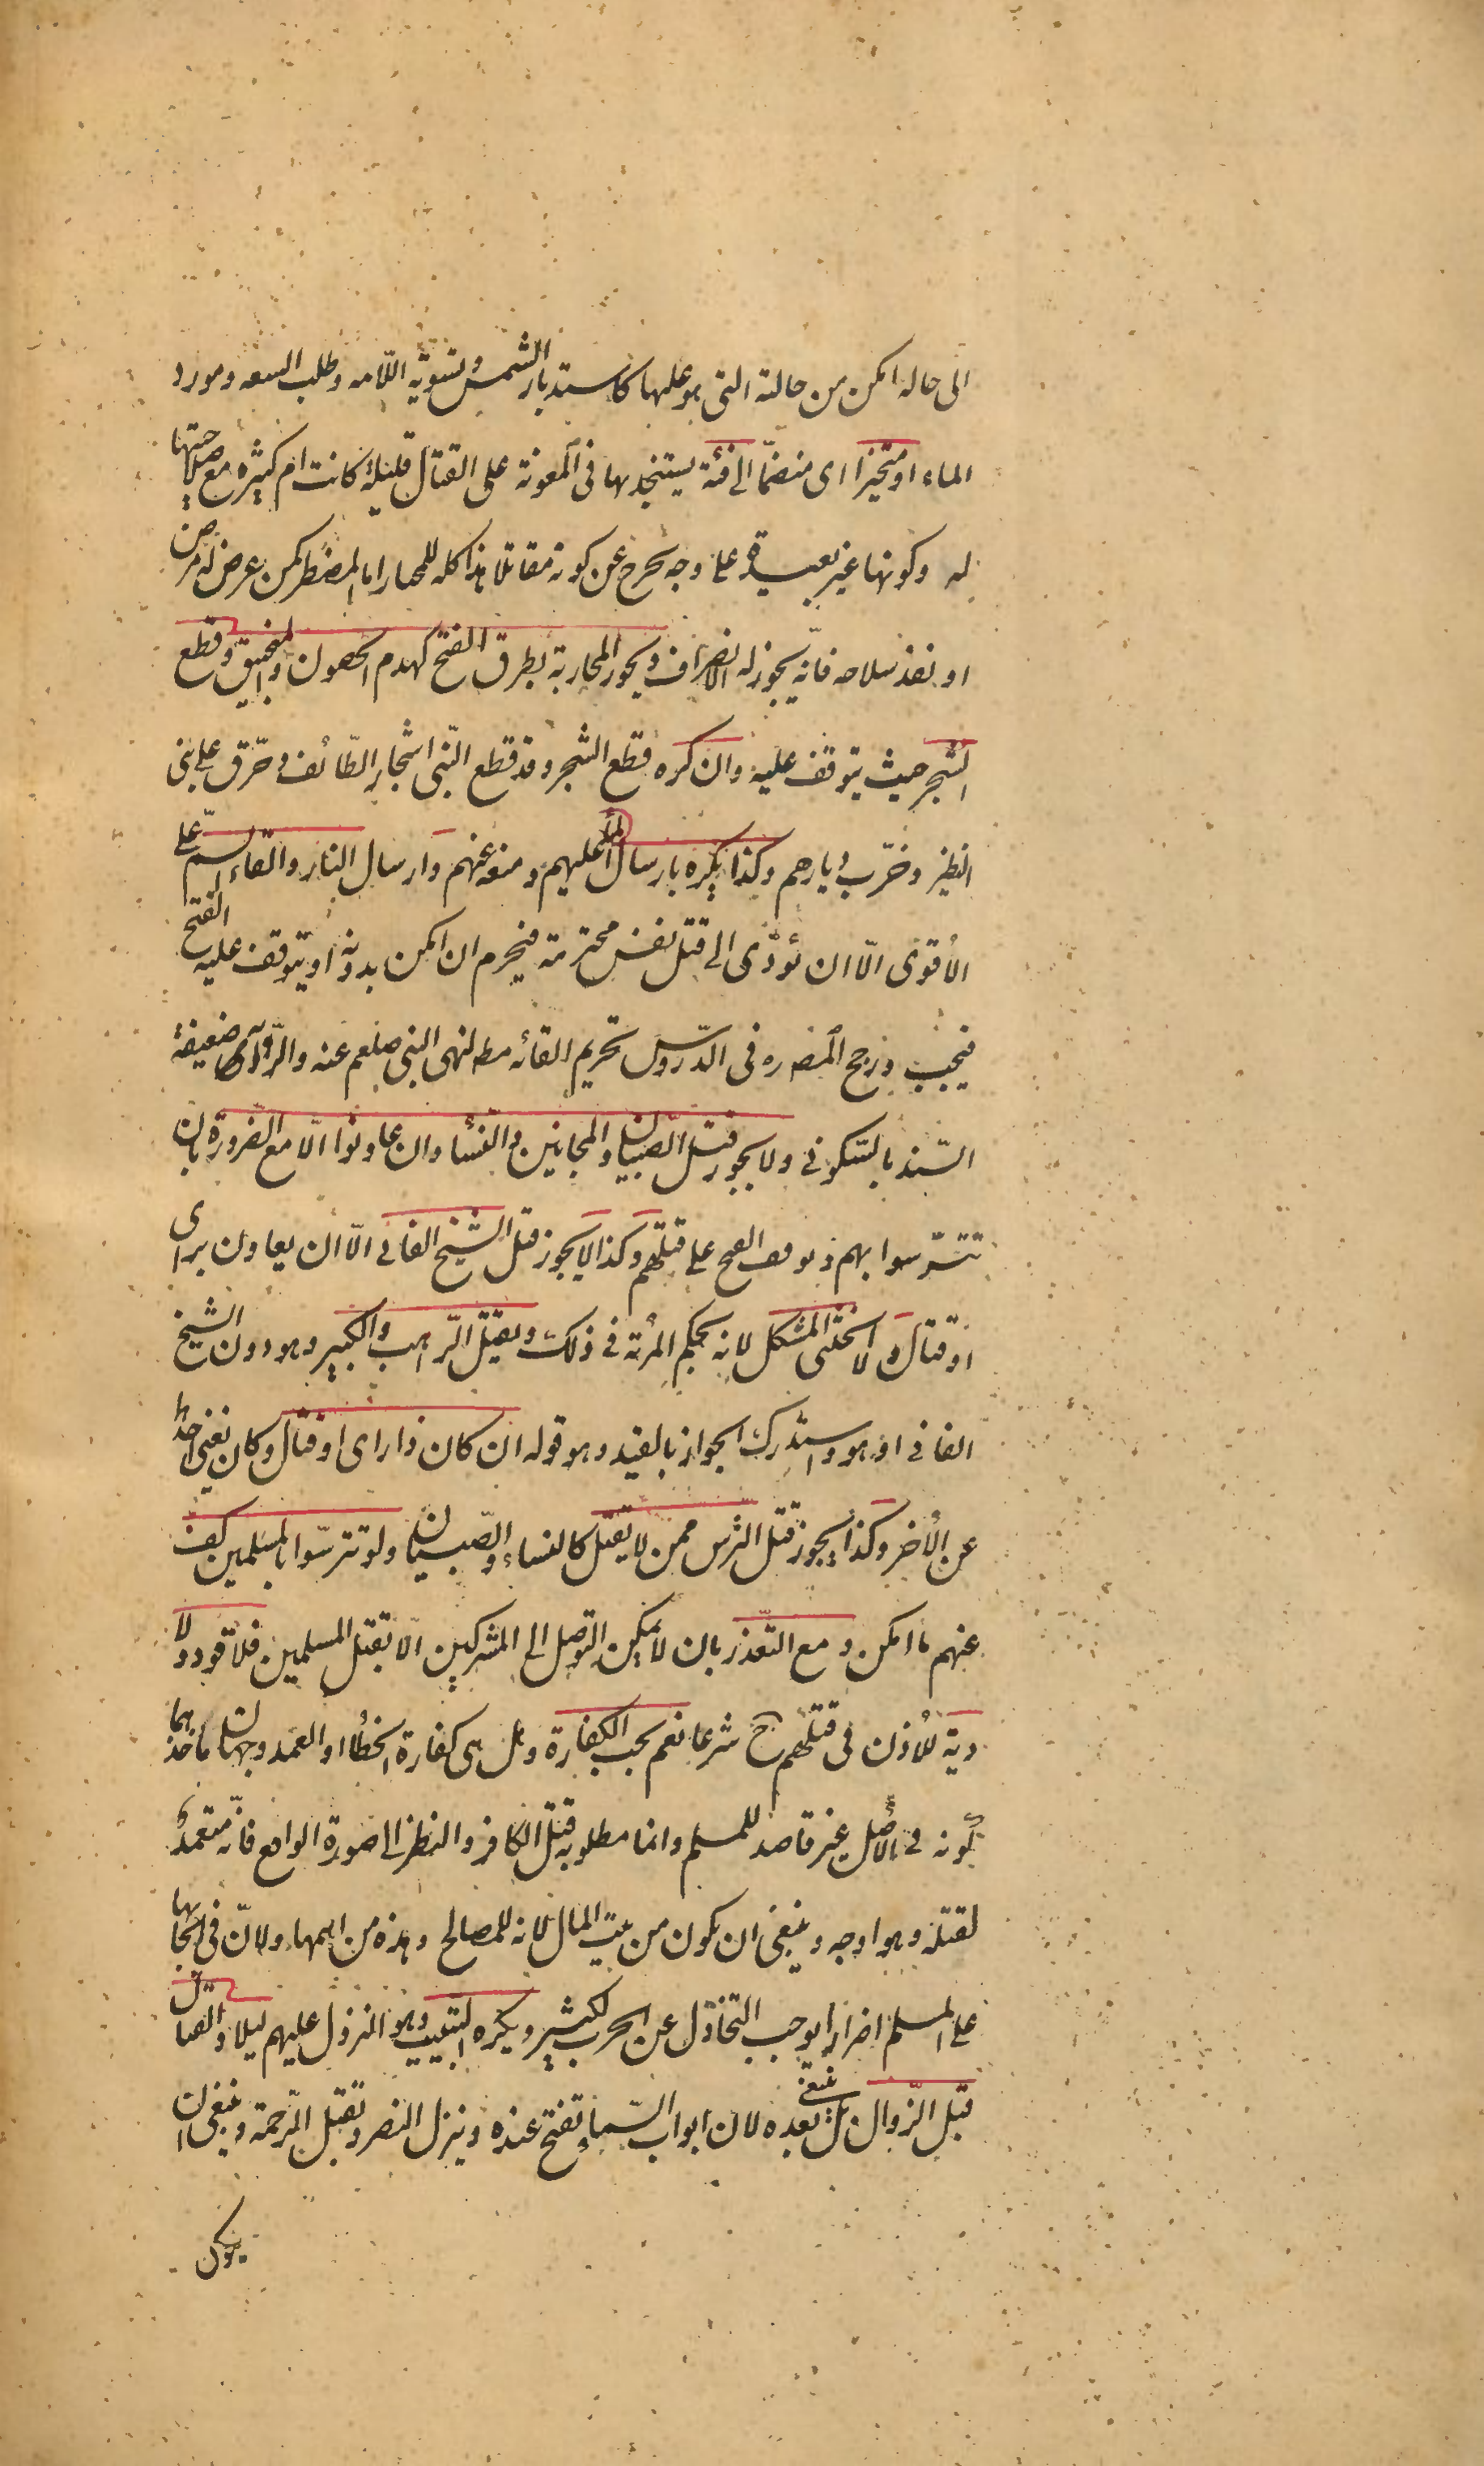 الى حالة امكن من حالته التى هو عليها كاستدبار الشمس وتسوية اللامه وطلب السعه ومورد
الماء او متحيزا اى منضمّا الى فئة يستنجد بها فى المعونة على القتال قليلة كانت ام كثيرة مع صلاحيتها
له وكونها غير بعيدة على وجه يخرج عن كونه مقاتلا هذا كله للمختار اما المضطر كمن عرض له مرض
او نفد سلاحه فانّه يجوز له الانصراف ويجوز المحاربة بطرق الفتح كهدم الحصون والمنجنيق وقطع
الشجر حيث يتوقف عليه وان كره قطع الشجر وقد قطع النّبى اشجار الطّائف وحرّق على بنى
النظير وخرّب ديارهم وكذا يكره بارسال الماء عليهم ومنعه عنهم وارسال النار والقاء السمّ على
الأقوى الّا ان تؤدّى الى قتل نفس محترمة فيحرم ان امكن بدونه او يتوقف عليه الفتح
فيجب ورجح المصره فى الدّروس تحريم القائه مطه لنهى النبى صلعم عنه والرّواية ضعيفة
السّند بالسّكونى ولا يجوز قتل الصّبيان والمجانين والنّساء وان عاونوا الّا مع الضّرورة بان
تتترّسوا بهم وتوقف الفتح على قتلهم وكذا لا يجوز قتل الشّيخ الفانى الّا ان يعاون براى
او قتال ولا الخنثى المشكل لانه بحكم المرئة فى ذلك ويقتل الرّاهب والكبير وهو دون الشيخ
الفانى او هو واستدرك الجواز بالقيد وهو قوله ان كان ذا راى او قتال وكان يغنى احدهما
عن الأخر وكذا يجوز قتل الترس ممن لا يقتل كالنساء والصّبيان ولو تترسّوا بالمسلمين كف
عنهم ما امكن ومع التّعذر بان لا يمكن التوصل الى المشركين الّا بقتل المسلمين فلا قود ولا
دية للأذن فى قتلهم ح شرعا نعم يجب الكفارة وهل هى كفارة الخطأ او العمد وجهان ماخذهما
كونه فى الأصل غير قاصد للمسلم وانما مطلوبه قتل الكافر والنظر الى صورة الواقع فانّه متعمد
لقتله وهو اوجه وينبغى ان يكون من بيت المال لانه للمصالح وهذه من اهمها ولانّ فى ايجابها
على المسلم اضرارا يوجب التخاذل عن الحرب لكثير ويكره التبييت وهو النزول عليهم ليلا والقتال
قبل الزّوال بل ينبغى بعده لان ابواب السّماء تفتح عنده وينزل النصر وتقبل الرّحمة وينبغى ان
يكون